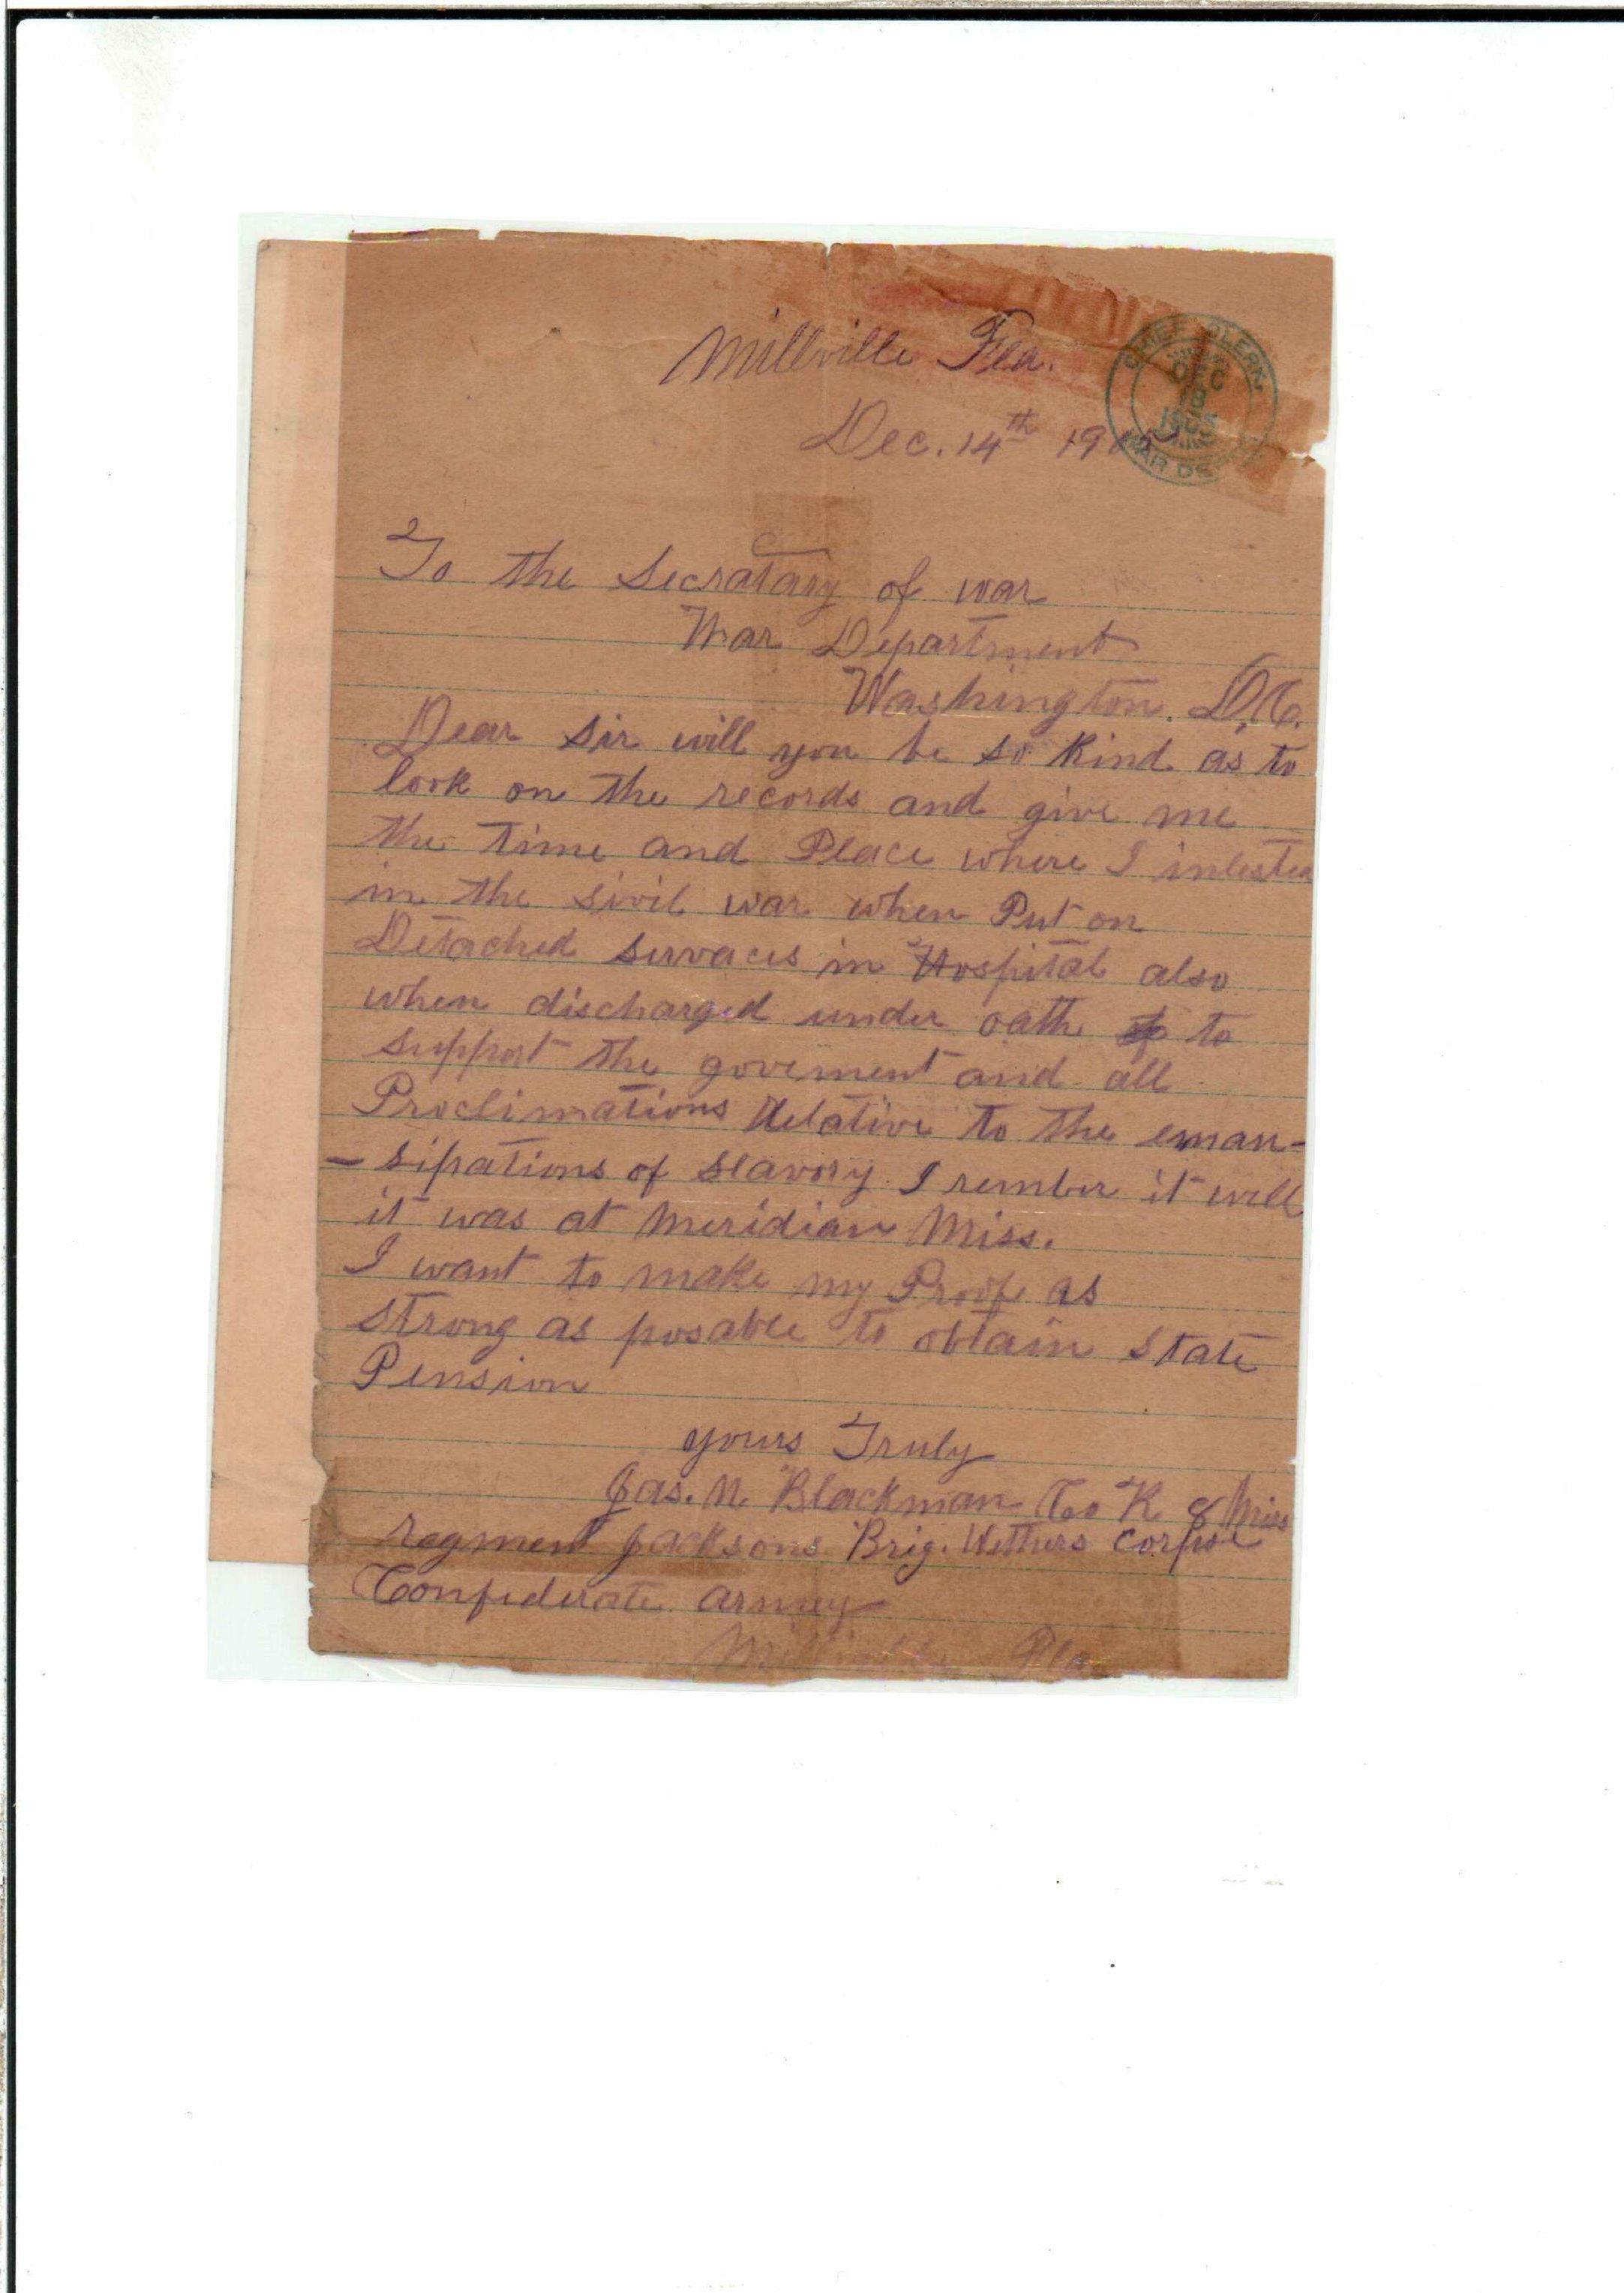 Millville Fla.
CHIEF CLERK
DEC
18
WAR DEPT.
Dec. 14th 1905
To the Secratary of war
War Department
Washington. D.C.
Dear Sir will you be so Kind as to
look on the records and give me
the time and Place where I inlested
in the sivil war when Put on
Detached survaces in Hospital also
when discharged under oath to
support the goverment and all
Proclimations Relative to the eman-
-sipations of Slavory I rember it well
it was at Meridian Miss.
I want to make my Proof as
strong as posable to obtain State
Pension
yours Truly
Jas. N. Blackman Co K 8 Miss
regment Jacksons Brig. Wethers corpse
Confederate army
Millville Fla